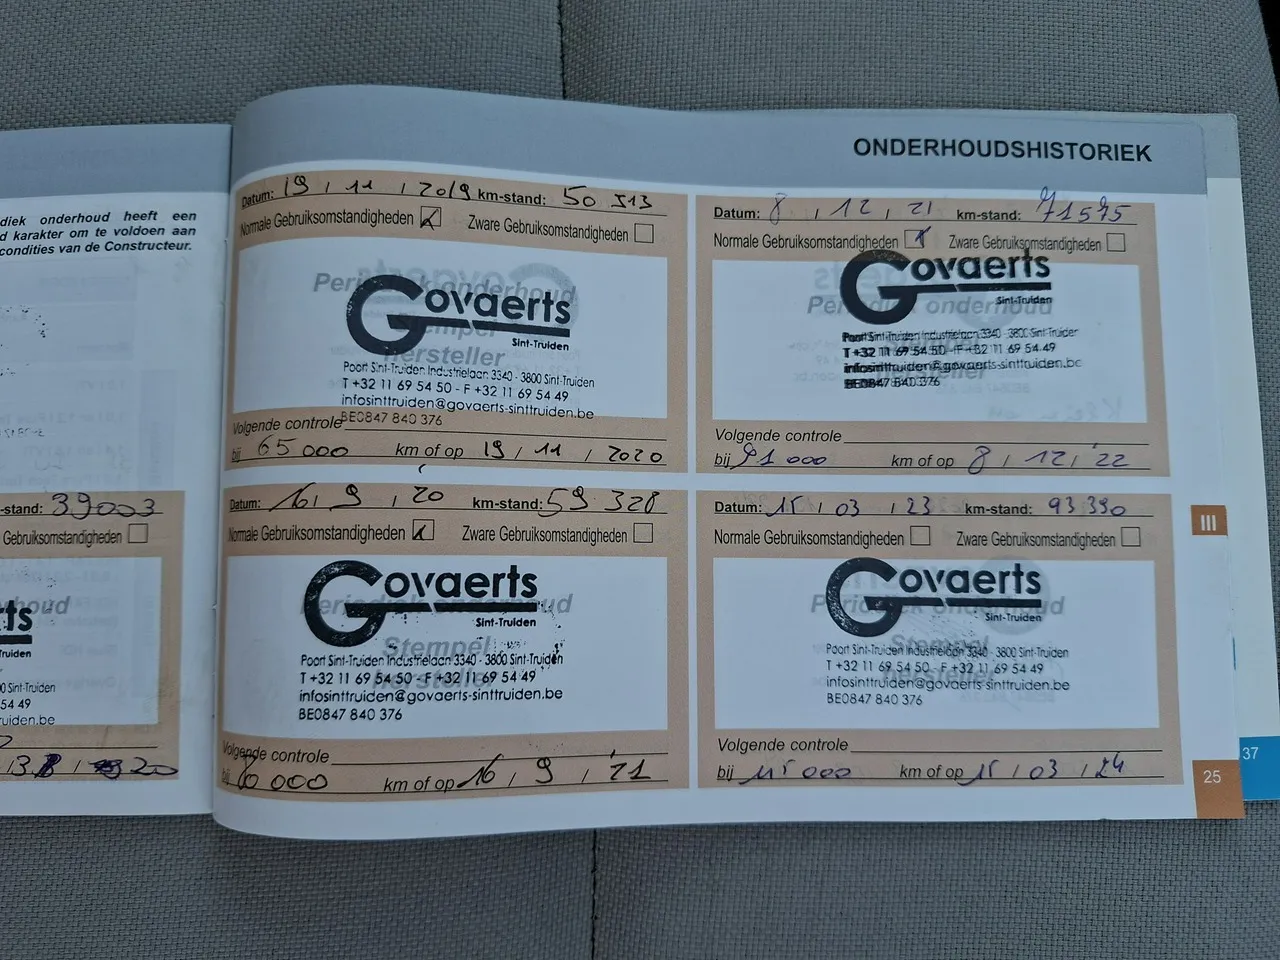 diek onderhoud heeft een
d karakter om te voldoen aan
condities van de Constructeur.
-stand: 39003
Gebruiksomstandigheden
houd
ts
ruiden
00 Sint-Truiden
54 49
ruiden.be
20
ONDERHOUDSHISTORIEK
Datum: 19 / 11 / 2019 km-stand: 50 513
Normale Gebruiksomstandigheden Zware Gebruiksomstandigheden
Periodiek onderhoud
Govaerts
Sint-Truiden
Stempel
hersteller
Poort Sint-Truiden Industrielaan 3340 - 3800 Sint-Truiden
T +32 11 69 54 50 - F +32 11 69 54 49
infosinttruiden@govaerts-sinttruiden.be
BE0847 840 376
Volgende controle
bij 65 000 km of op 19 / 11 / 2020
Datum: 16 / 9 / 20 km-stand: 59 328
Normale Gebruiksomstandigheden Zware Gebruiksomstandigheden
Govaerts
Periodiek onderhoud
Sint-Truiden
Stempel
hersteller
Poort Sint-Truiden Industrielaan 3340 - 3800 Sint-Truiden
T +32 11 69 54 50 - F +32 11 69 54 49
infosinttruiden@govaerts-sinttruiden.be
BE0847 840 376
Volgende controle
bij 000 km of op 16 / 9 / '21
Datum: 8 / 12 / 21 km-stand: 71575
Normale Gebruiksomstandigheden Zware Gebruiksomstandigheden
Govaerts
Sint-Truiden
Periodiek onderhoud
Poort Sint-Truiden Industrielaan 3340 - 3800 Sint-Truiden
T +32 11 69 54 50 - F +32 11 69 54 49
infosinttruiden@govaerts-sinttruiden.be
BE0847 840 376
Volgende controle
bij 91 000 km of op 8 / 12 / '22
Datum: 15 / 03 / 23 km-stand: 93 390
Normale Gebruiksomstandigheden Zware Gebruiksomstandigheden
Govaerts
Periodiek onderhoud
Sint-Truiden
Stempel
hersteller
Poort Sint-Truiden Industrielaan 3340 - 3800 Sint-Truiden
T +32 11 69 54 50 - F +32 11 69 54 49
infosinttruiden@govaerts-sinttruiden.be
BE0847 840 376
Volgende controle
bij 115 000 km of op 15 / 03 / 24
III
25
37